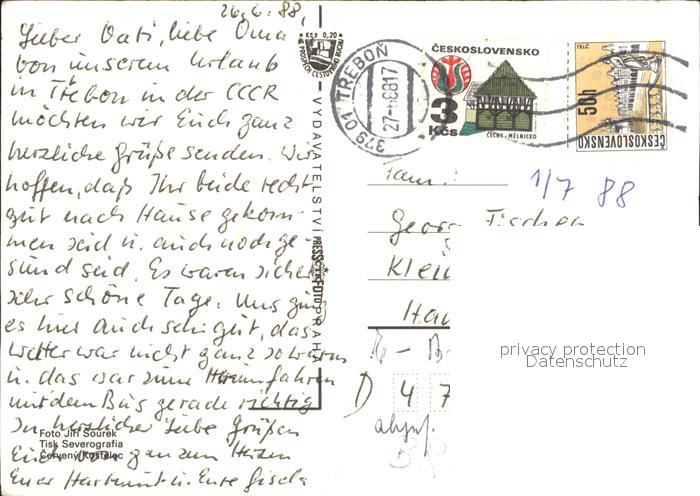 26.6.88,
Lieber Vati, liebe Oma
von unserem Urlaub
in Třebon in der CCCR
möchten wir Euch ganz
herzliche Grüße senden. Wir
hoffen, daß Ihr beide recht
gut nach Hause gekom-
men seid u. auch noch ge-
sund seid. Es waren sicher
sehr schöne Tage. Uns ging
es hier auch sehr gut, das
Wetter war nicht ganz so warm
u. das war zum fahren
mit dem Bus gerade richtig
In herzlicher Liebe Grüßen
Euch von ganzem Herzen
Euer Hartmut u. Eure Gisela
Foto Jiří Sourek
Tisk Severografia
Červený Kostelec
Kčs 0,20
VYDAVATELSTVÍ PRESSFOTO PRAHA
379 01 TŘEBOŇ
27.-6.88 17
ČESKOSLOVENSKO
3 Kčs
ČECHY - MĚLNICKO
TELČ
50h
ČESKOSLOVENSKO
Fam.
1/7 88
Georg Fischer
Klei
Hau
D 4 7
privacy protection
Datenschutz